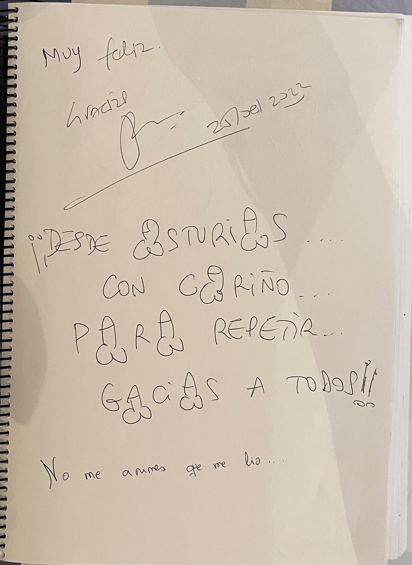 Muy feliz.
Gracias
¡¡DESDE ASTURIAS....
CON CARIÑO...
PARA REPETIR...
GACIAS A TODOS!!
No me animes que me lio...